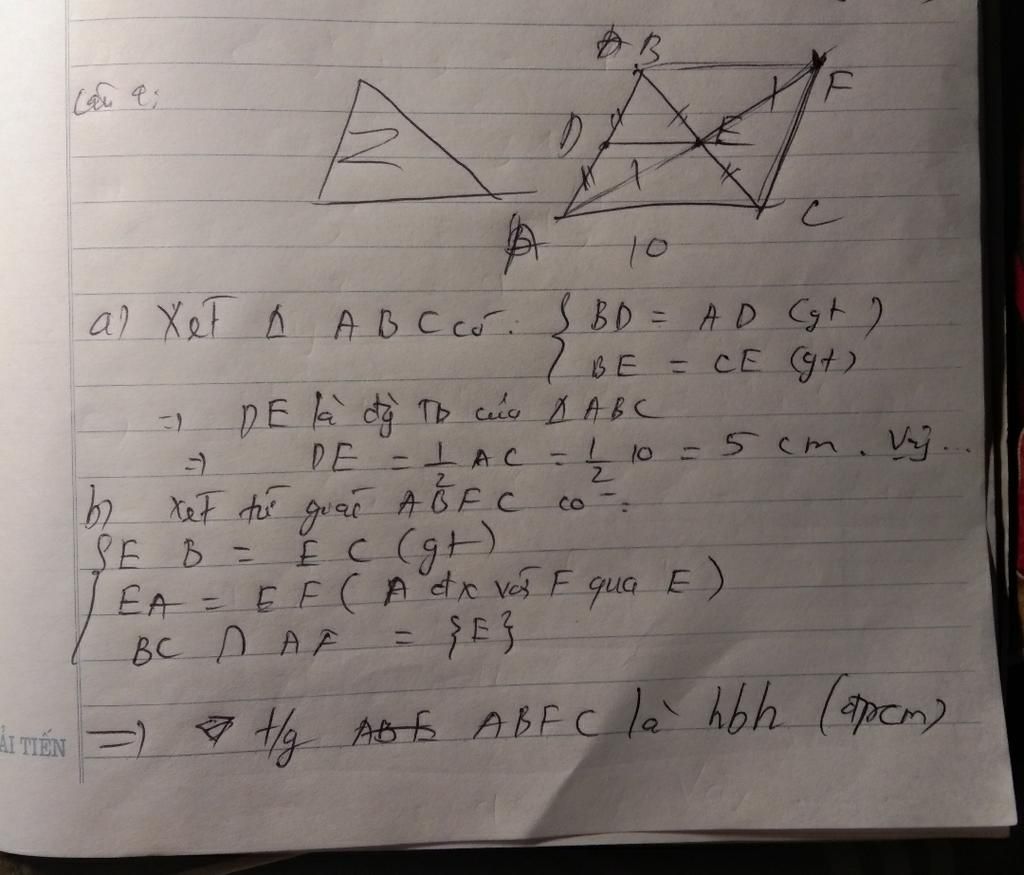 Câu 4:
B
D
E
F
A
C
10
a) Xét Δ ABC có: { BD = AD (gt)
BE = CE (gt)
=> DE là đg TB của Δ ABC
=> DE = 1/2 AC = 1/2 10 = 5 cm. Vậy...
b) Xét tứ giác ABFC có:
{ E B = E C (gt)
EA = E F ( A đx với F qua E )
BC ∩ AF = {E}
=> t/g ABFC là hbh (đpcm)
ẢI TIẾN